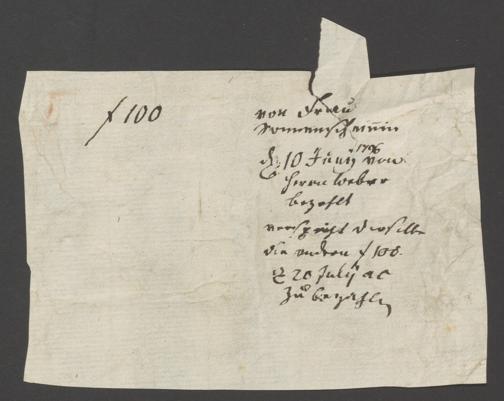 f 100
von Frau
Sonnenscheinin
d: 10 Junij 1796 von
Herrn Weber
bezahlt
verspricht dieselbe
die andren f 100.
20 Julij ac
zu bezahlen